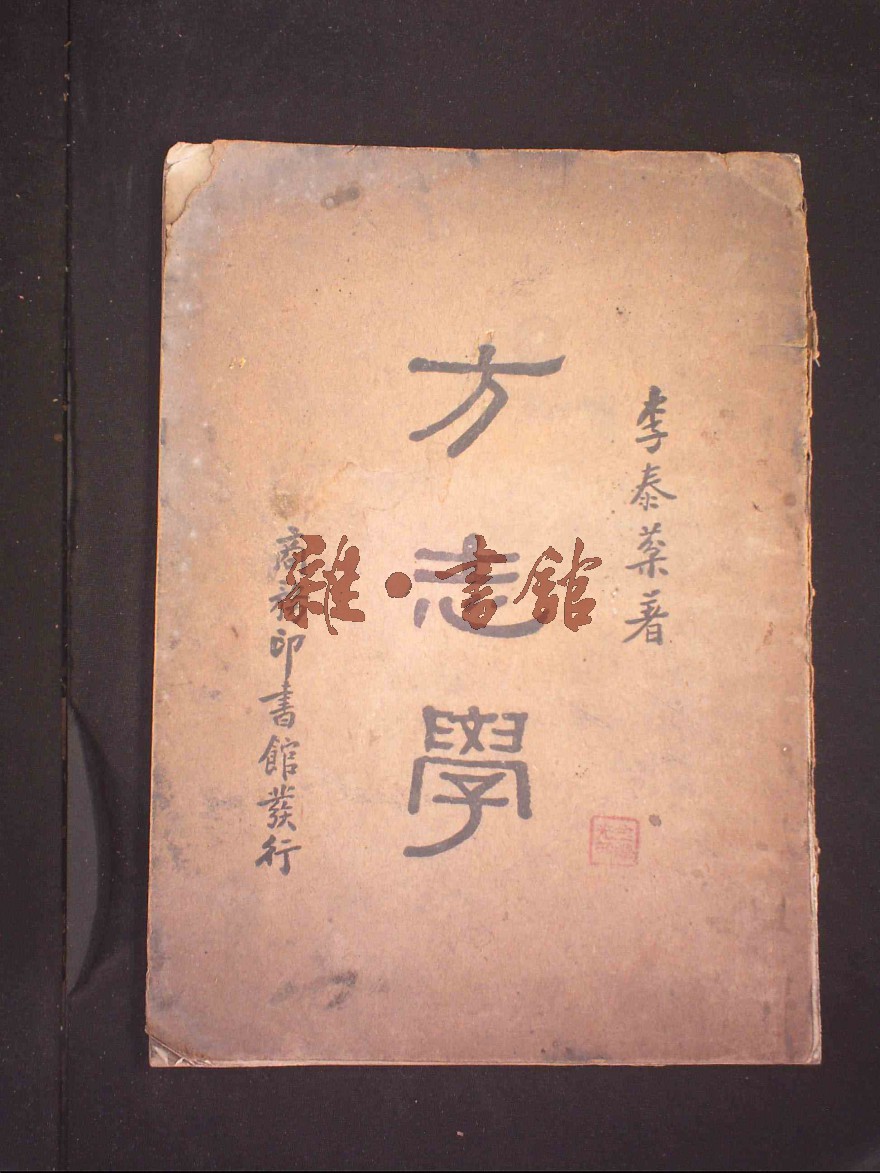 李泰棻著
方志學
商務印書館發行
雜·書館